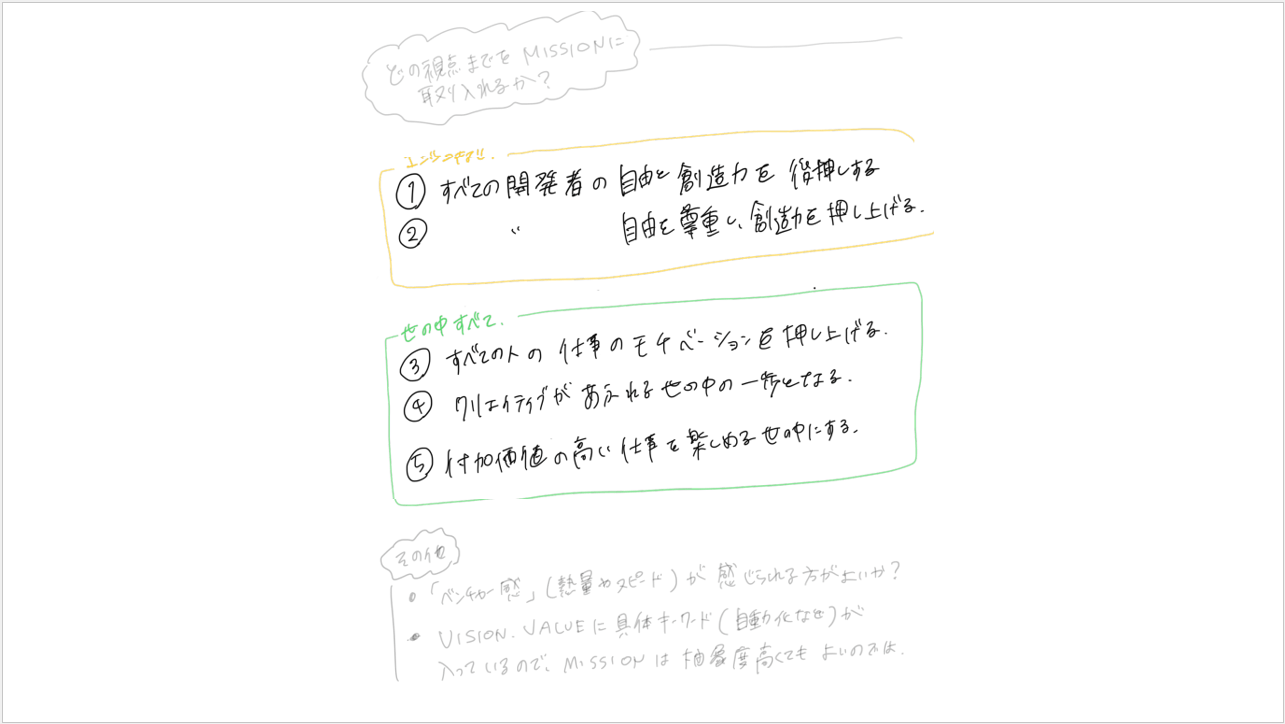 どの視点までを MISSIONに
取り入れるか?
エンジニアだけ.
① すべての開発者の自由と創造力を後押しする
② 〃 自由を尊重し、創造力を押し上げる.
世の中すべて.
③ すべての人の仕事のモチベーションを押し上げる.
④ クリエイティブがあふれる世の中の一歩となる.
⑤ 付加価値の高い仕事を楽しめる世の中にする.
その他
• 「ベンチャー感」(熱量やスピード)が感じられる方がよいか?
• VISION.VALUEに具体キーワード(自動化など)が
入っているので、MISSIONは抽象度高くてもよいのでは.